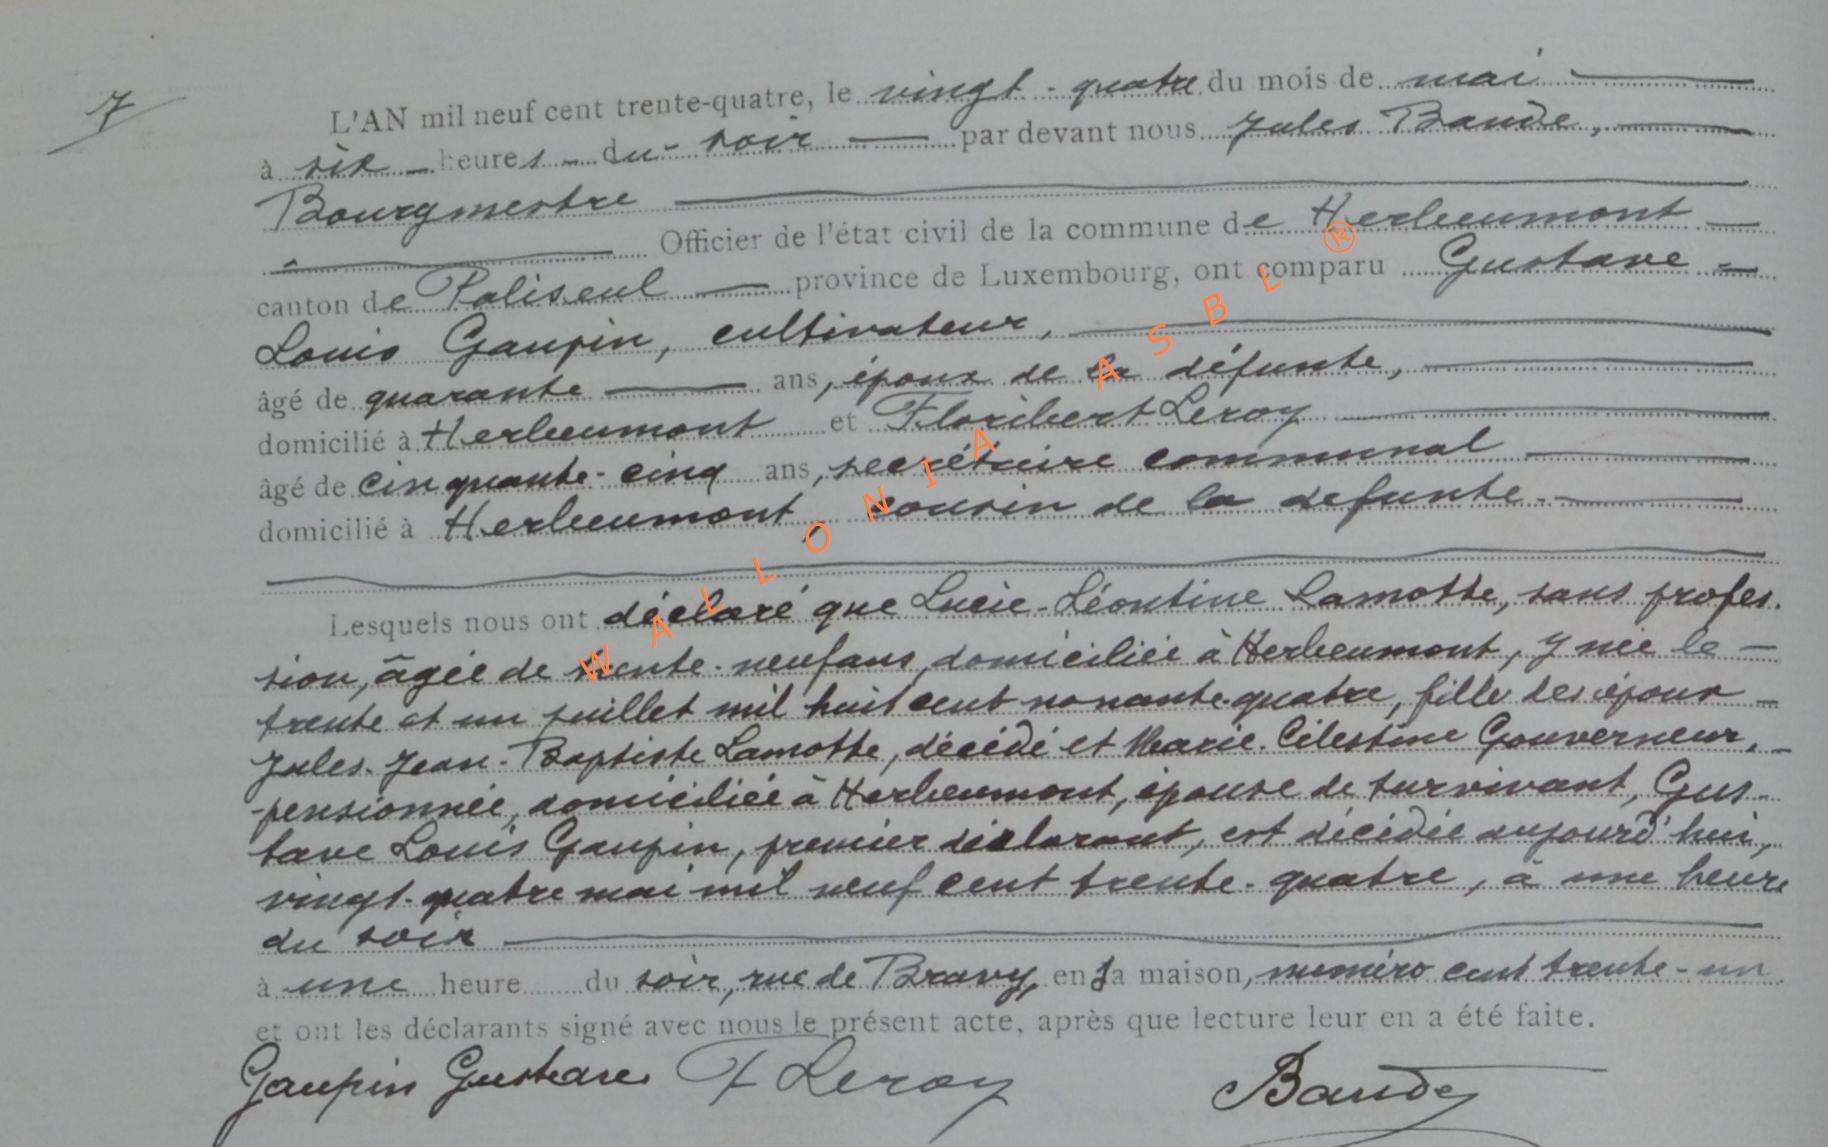 7
L'AN mil neuf cent trente-quatre, le vingt-quatre du mois de mai
à six heures du soir par devant nous Jules Baude,
Bourgmestre
Officier de l'état civil de la commune de Herbeumont
canton de Paliseul province de Luxembourg, ont comparu Gustave
Louis Gaupin, cultivateur,
âgé de quarante ans, époux de la défunte,
domicilié à Herbeumont et Floribert Leroy
âgé de cinquante-cinq ans, secrétaire communal
domicilié à Herbeumont, cousin de la défunte.
Lesquels nous ont déclaré que Lucie-Léontine Lamotte, sans profes-
sion, âgée de trente-neuf ans, domiciliée à Herbeumont, y née le
trente et un juillet mil huit cent nonante-quatre, fille des époux
Jules-Jean-Baptiste Lamotte, décédé et Marie-Célestine Gouverneur,
pensionnée, domiciliée à Herbeumont, épouse de survivant, Gus-
tave Louis Gaupin, premier déclarant, est décédée aujourd'hui,
vingt-quatre mai mil neuf cent trente-quatre, à une heure
du soir
à une heure du soir, rue de Bravy, en sa maison, numéro cent trente-un
et ont les déclarants signé avec nous le présent acte, après que lecture leur en a été faite.
Gaupin Gustave F Leroy Baude
WALLONIA ASBL ®